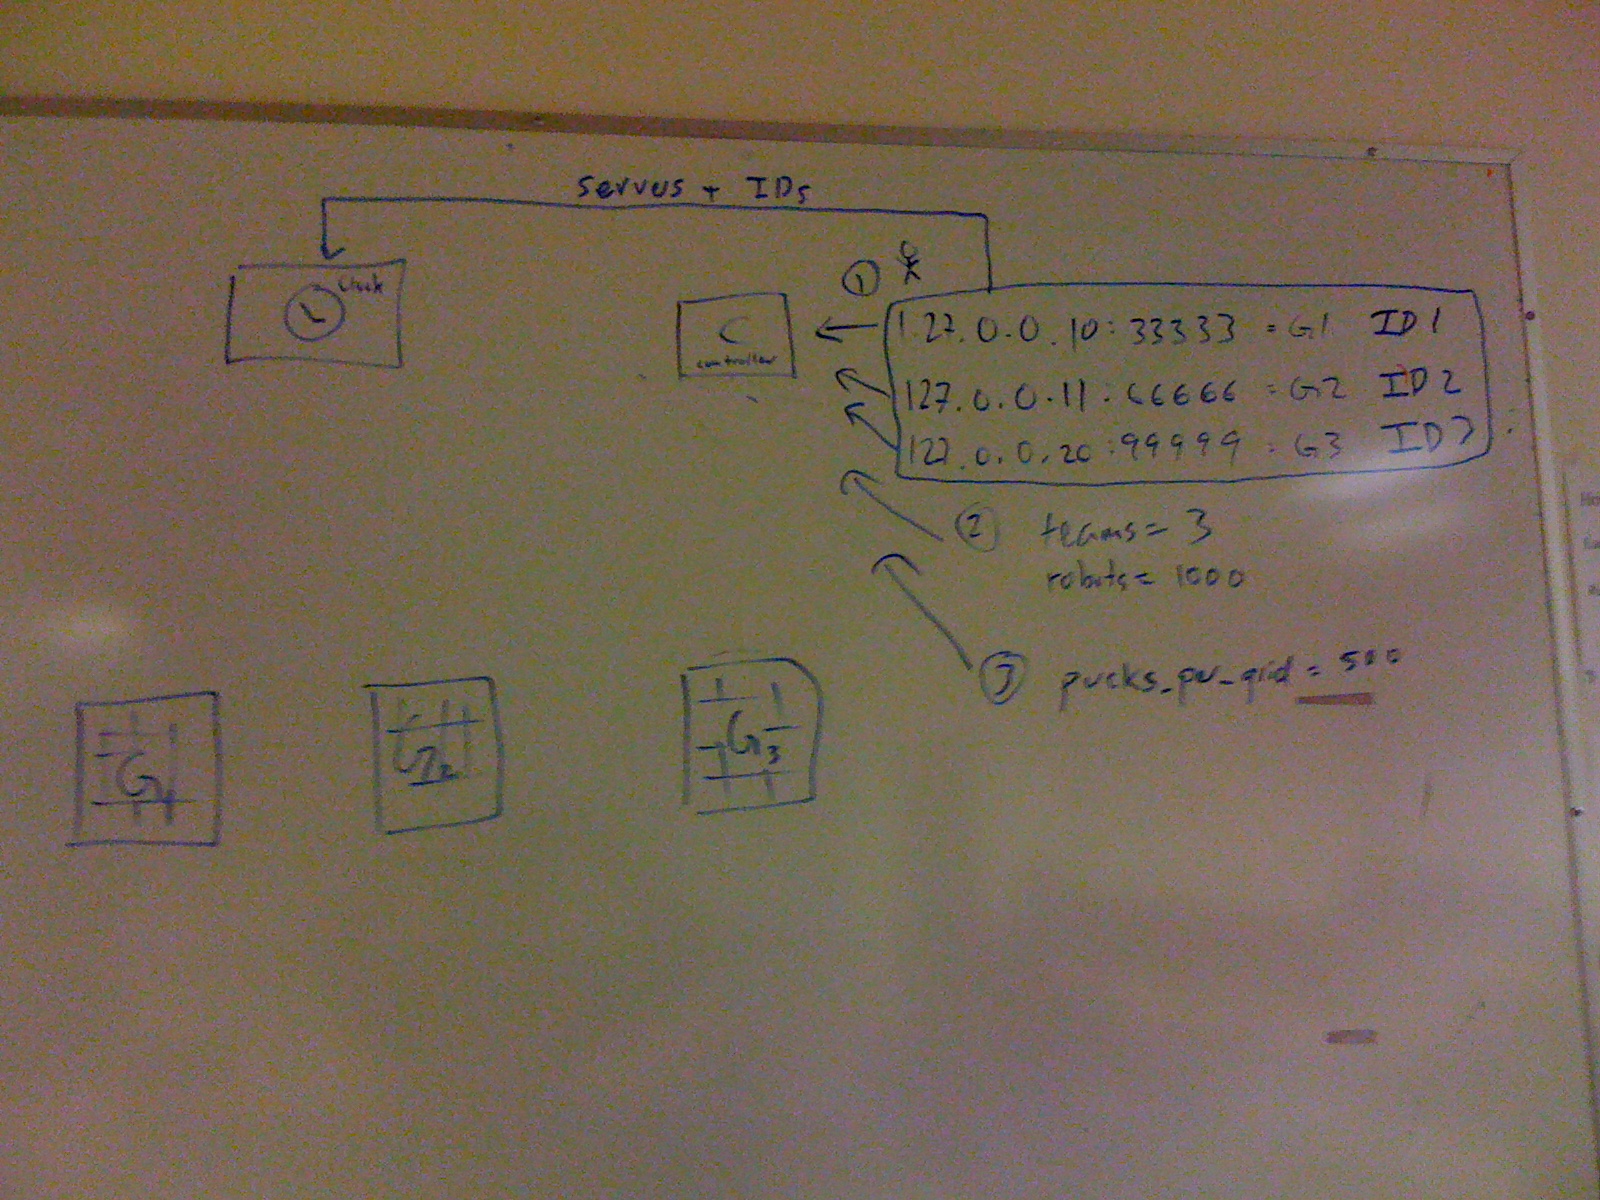 servers + IDs
clock
①
C
controller
127.0.0.10:33333 = G1 ID1
127.0.0.11:66666 = G2 ID2
127.0.0.20:99999 = G3 ID3
② teams = 3
robots = 1000
③ pucks_per_grid = 500
G1
G2
G3